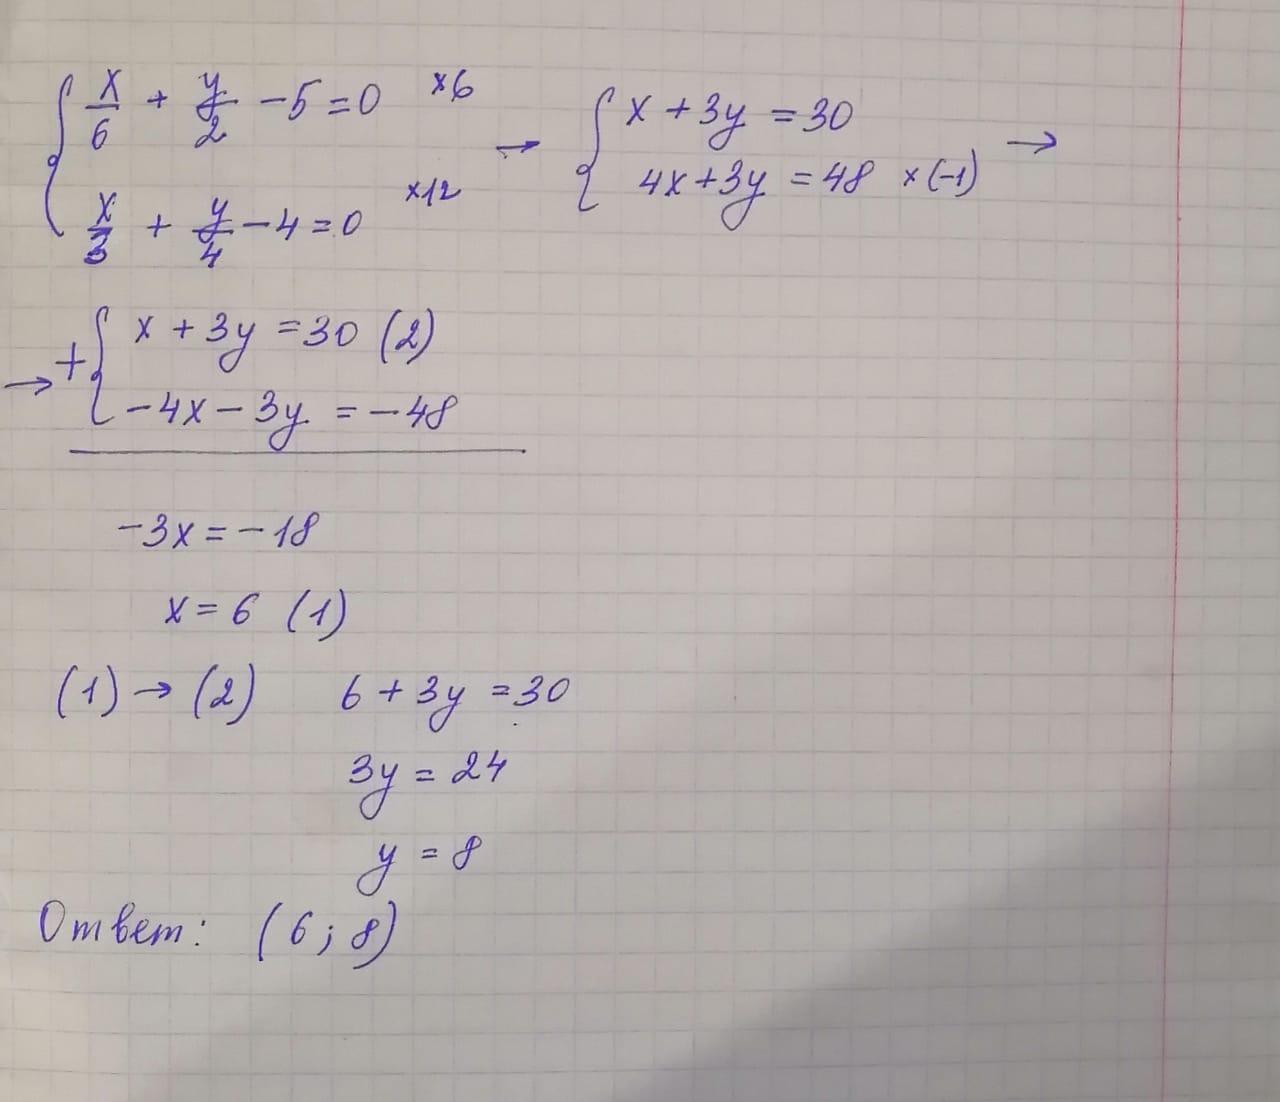 x/6 + y/2 - 5 = 0 ×6 → x + 3y = 30 →
x/3 + y/4 - 4 = 0 ×12 4x + 3y = 48 ×(-1)
→ + x + 3y = 30 (2)
-4x - 3y = -48
-3x = -18
x = 6 (1)
(1) → (2) 6 + 3y = 30
3y = 24
y = 8
Ответ: (6; 8)